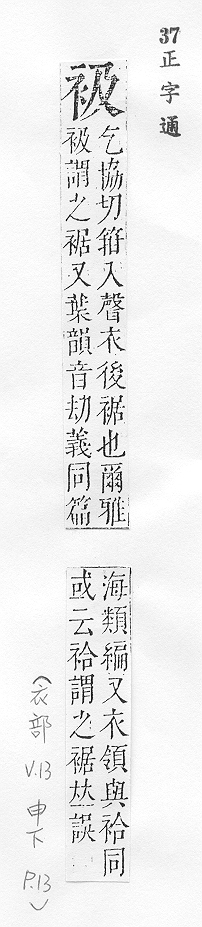 37
正字通
衱
乞協切箝入聲衣後裾也爾雅
衱謂之裾又葉韻音劫義同篇
海類編又衣領與袷同
或云袷謂之裾𠀤誤
(衣部 V.13 申下 P.13)